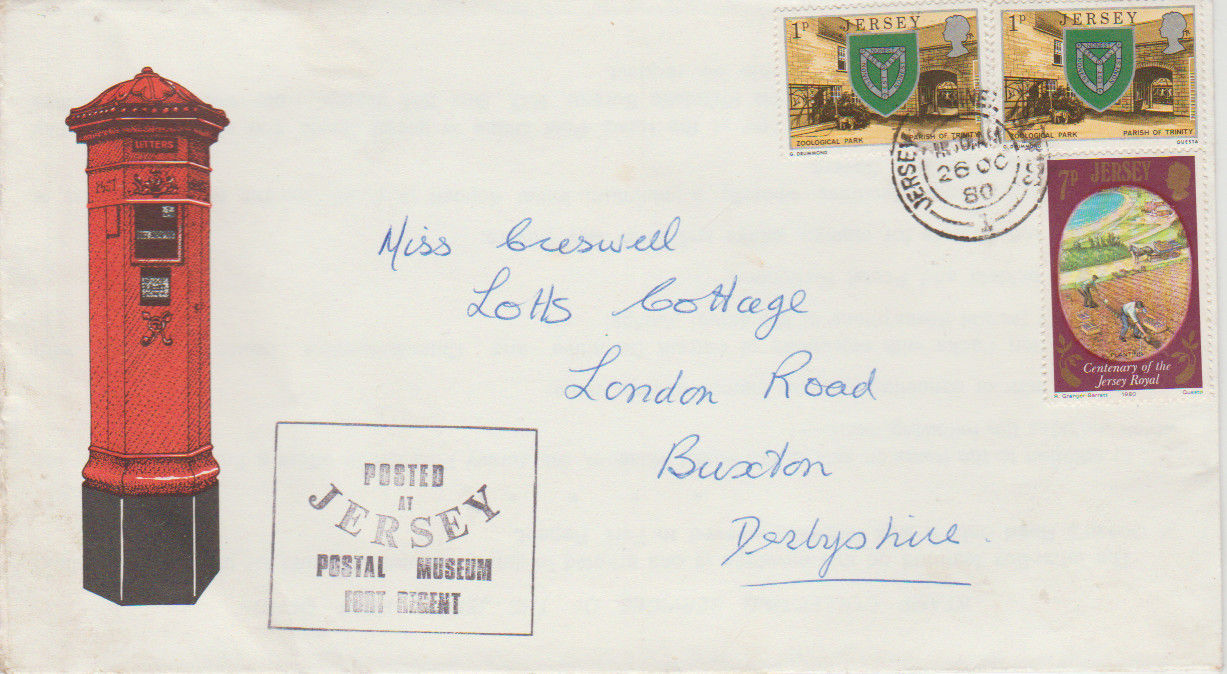 1P JERSEY
ZOOLOGICAL PARK PARISH OF TRINITY
G. DRUMMOND
1P JERSEY
ZOOLOGICAL PARK PARISH OF TRINITY
G. DRUMMOND QUESTA
JERSEY
26 OC
80
1
7P JERSEY
PLANTING
Centenary of the
Jersey Royal
R. Granger Barrett 1980 Questa
LETTERS
Miss Creswell
Lotts Cottage
London Road
Buxton
Derbyshire.
POSTED
AT
JERSEY
POSTAL MUSEUM
FORT REGENT